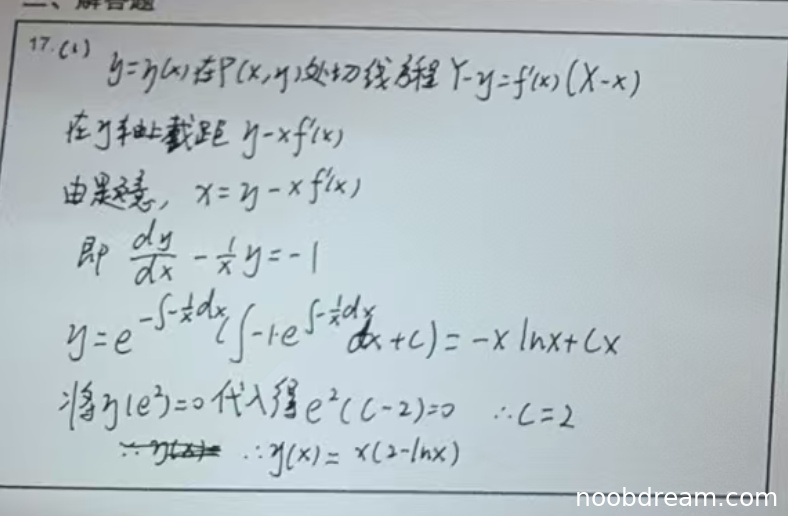 二、解答题
17.(1) y=y(x)在P(x,y)处切线方程 Y-y=f'(x)(X-x)
在y轴上截距 y-xf'(x)
由题意, x=y-xf'(x)
即 dy/dx - 1/x y=-1
y=e^{-∫-1/x dx}(∫-1·e^{∫-1/x dx}dx+C)=-x lnx+Cx
将y(e²)=0代入得e²(C-2)=0 ∴C=2
∴y(x)= ∴y(x)=x(2-lnx)
noobdream.com